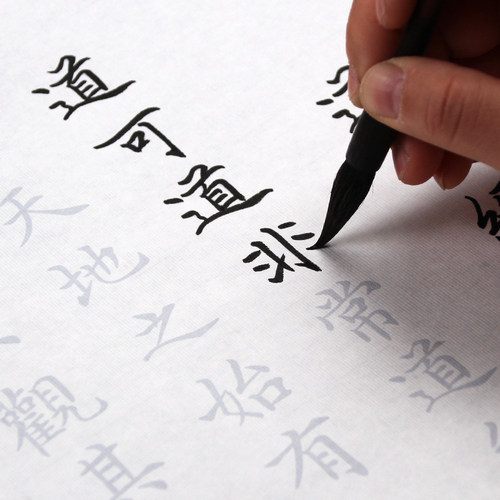 道可道非常道
天地之始有
觀其